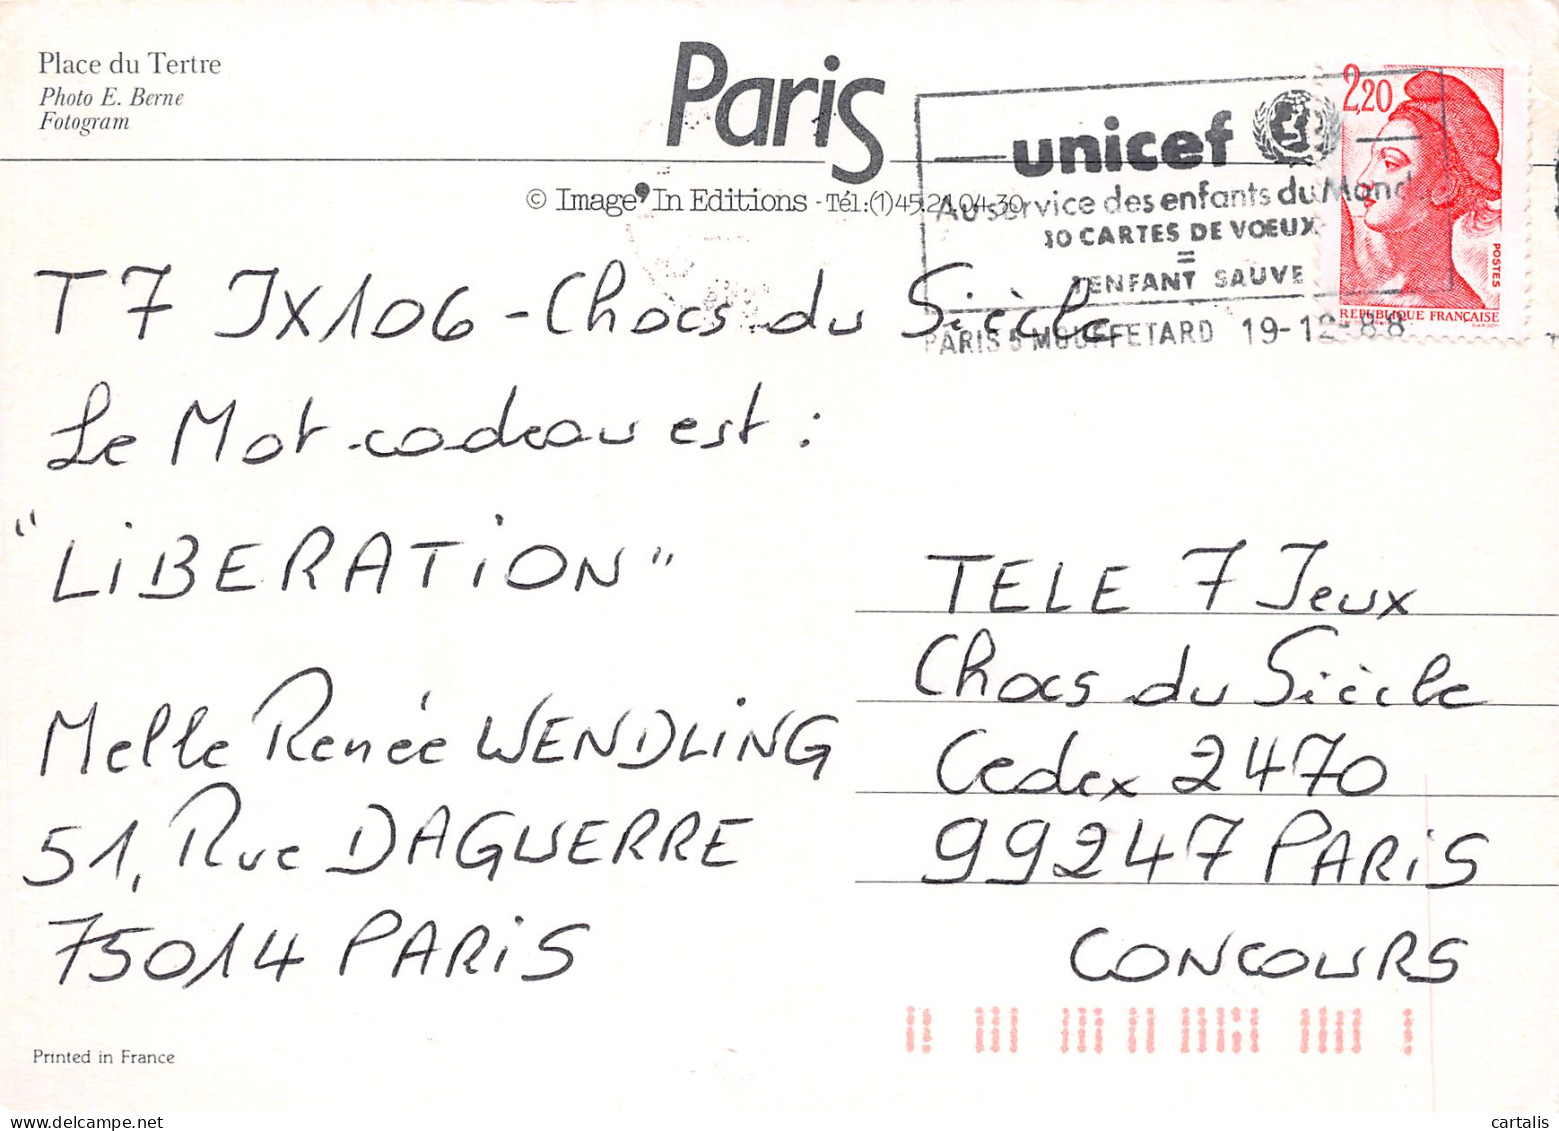 Place du Tertre
Photo E. Berne
Fotogram
Paris
© Image'In Editions - Tél:(1)45.21.04.30
unicef
Au service des enfants du Monde
10 CARTES DE VOEUX
=
1 ENFANT SAUVE
PARIS 5 MOUFFETARD 19-12-88
2,20
POSTES
REPUBLIQUE FRANÇAISE
T7 JX106 - Chocs du Siècle
Le Mot-cadeau est :
"LiBERATiON"
Melle Renée WENDLiNG
51, Rue DAGUERRE
75014 PARiS
TELE 7 Jeux
Chocs du Siècle
Cedex 2470
99247 PARiS
CONCOURS
Printed in France
cartalis